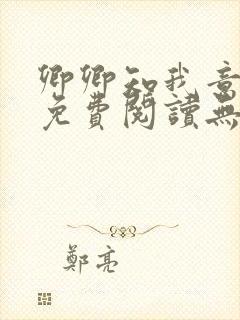 卿卿知我意
免費閱讀無
鄭亮